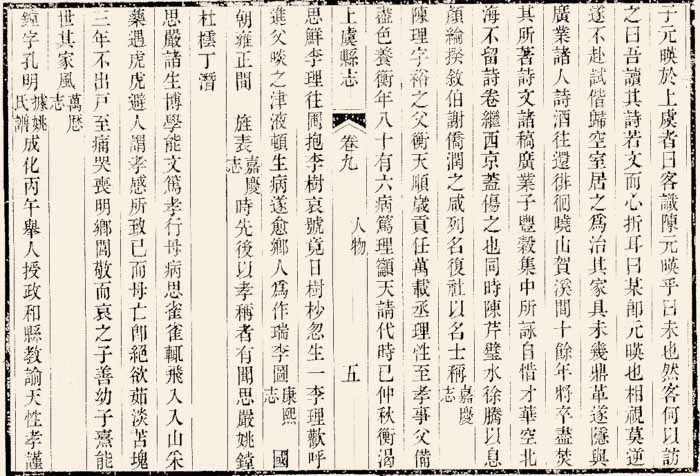 子元暎於上虞者曰客識陳元暎乎曰未也然客何以訪
之曰吾讀其詩若文而心折耳曰某卽元暎也相視莫逆
遂不赴試偕歸空室居之爲治其家具未幾鼎革遂隱與
廣業諸人詩酒往還徘徊曉山賀溪間十餘年將卒盡焚
其所著詩文諸稿廣業子豐穀集中所詠自惜才華空北
海不留詩卷繼西京蓋傷之也同時陳芹璧水徐騰以息
顏綸揆敘伯謝僑潤之咸列名復社以名士稱嘉慶志
陳理字裕之父衡天順歲貢任萬載丞理性至孝事父備
盡色養衡年八十有六病篤理籲天請代時已仲秋衡渴
上虞縣志
卷九
人物
五
思鮮李理往圃抱李樹哀號竟日樹杪忽生一李理歡呼
進父啖之津液頓生病遂愈鄉人爲作瑞李圖康熙志 國
朝雍正間 旌表嘉慶志 時先後以孝稱者有聞思嚴姚鏜
杜㯋丁潛
思嚴諸生博學能文篤孝行母病思雀雀輒飛入入山采
藥遇虎虎避人謂孝感所致已而母亡卽絕欲茹淡苫塊
三年不出戸至痛哭喪明鄉閭敬而哀之子善幼子熹能
世其家風萬厯志
鏜字孔明據姚氏譜成化丙午舉人授政和縣教諭天性孝謹